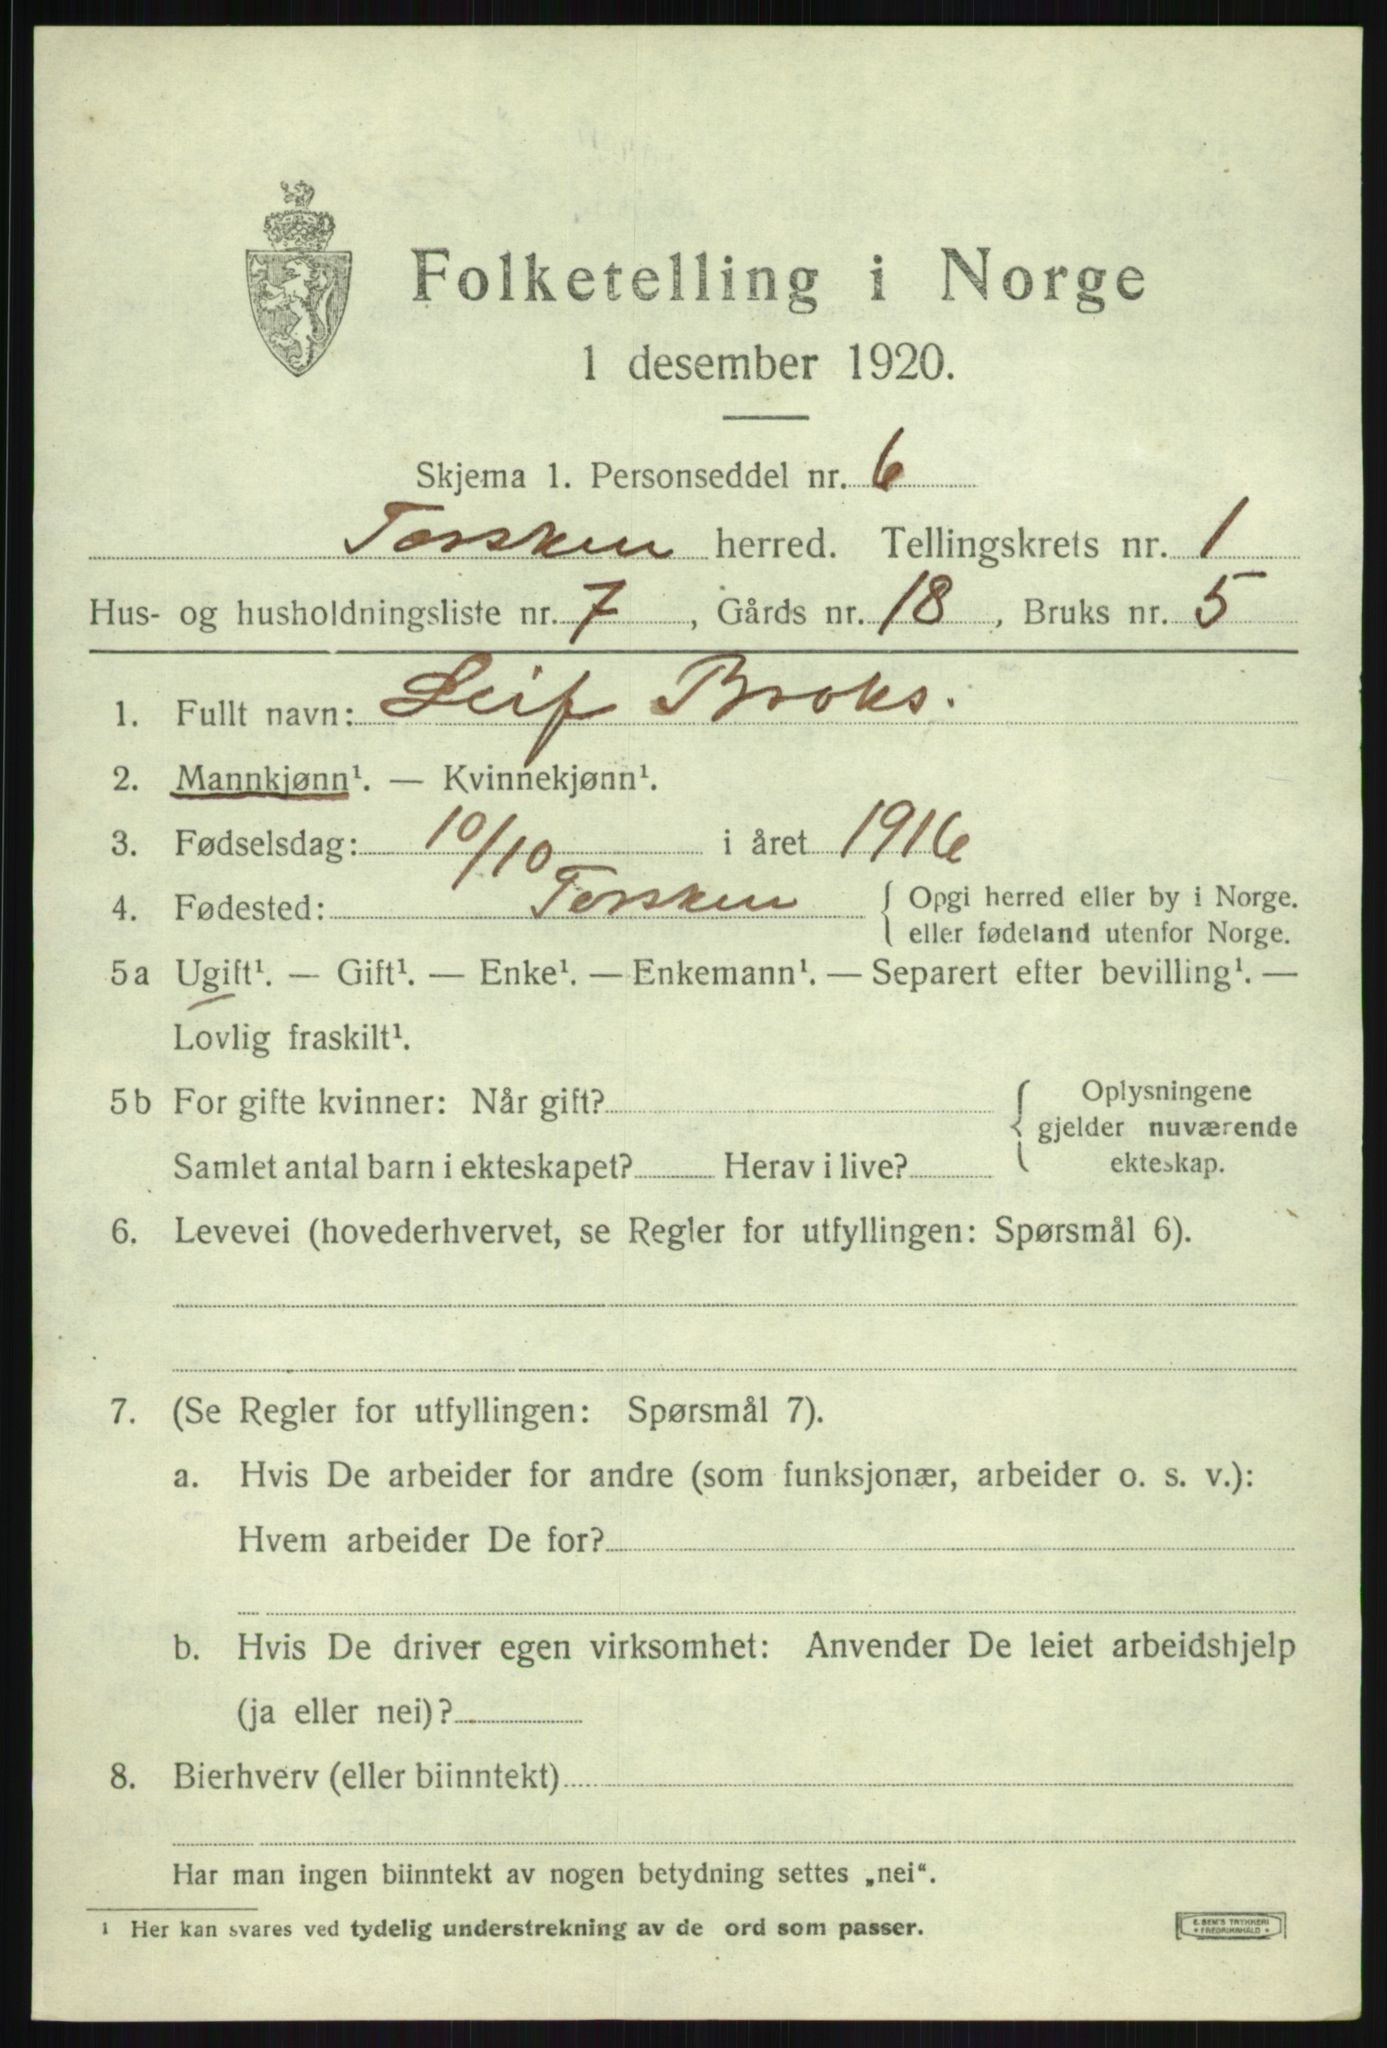 Folketelling i Norge
1 desember 1920.
Skjema 1. Personseddel nr. 6
Torsken herred. Tellingskrets nr. 1
Hus- og husholdningsliste nr. 7, Gårds nr. 18, Bruks nr. 5
1. Fullt navn: Leif Broks.
2. Mannkjønn¹. — Kvinnekjønn¹.
3. Fødselsdag: 10/10 i året 1916
4. Fødested: Torsken { Opgi herred eller by i Norge.
eller fødeland utenfor Norge.
5a Ugift¹. — Gift¹. — Enke¹. — Enkemann¹. — Separert efter bevilling¹. —
Lovlig fraskilt¹.
5b For gifte kvinner: Når gift? { Oplysningene
gjelder nuværende
Samlet antal barn i ekteskapet? Herav i live? ekteskap.
6. Levevei (hovederhvervet, se Regler for utfyllingen: Spørsmål 6).
7. (Se Regler for utfyllingen: Spørsmål 7).
a. Hvis De arbeider for andre (som funksjonær, arbeider o. s. v.):
Hvem arbeider De for?
b. Hvis De driver egen virksomhet: Anvender De leiet arbeidshjelp
(ja eller nei)?
8. Bierhverv (eller biinntekt)
Har man ingen biinntekt av nogen betydning settes „nei“.
¹ Her kan svares ved tydelig understrekning av de ord som passer.
E. SEM'S TRYKKERI
• FREDRIKSHALD •